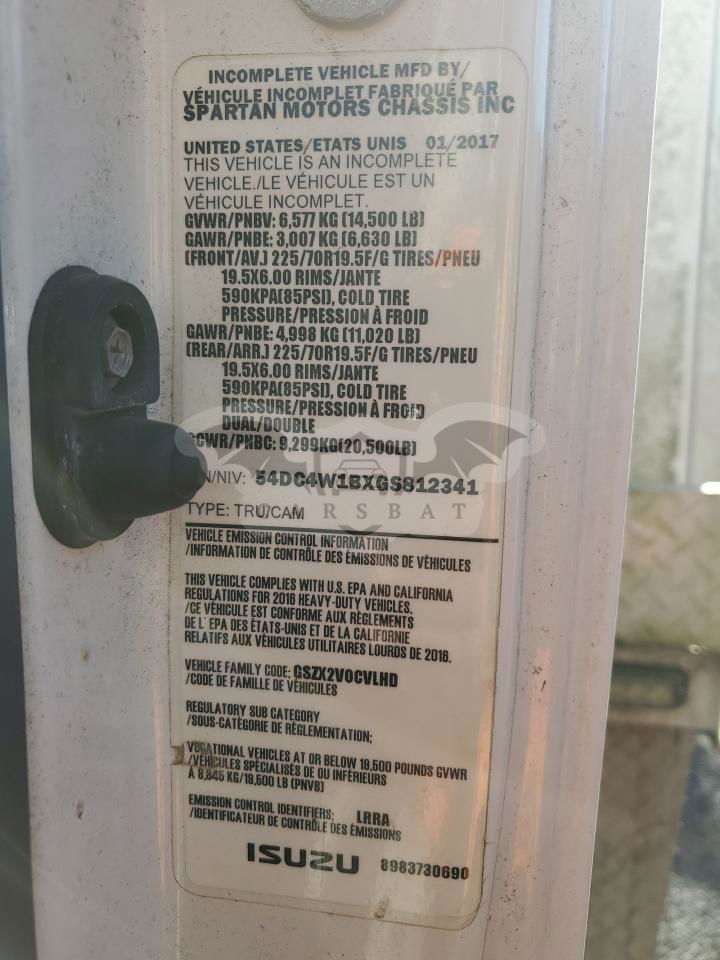 INCOMPLETE VEHICLE MFD BY/
VÉHICULE INCOMPLET FABRIQUÉ PAR
SPARTAN MOTORS CHASSIS INC
UNITED STATES/ETATS UNIS 01/2017
THIS VEHICLE IS AN INCOMPLETE
VEHICLE./LE VÉHICULE EST UN
VÉHICULE INCOMPLET.
GVWR/PNBV: 6,577 KG (14,500 LB)
GAWR/PNBE: 3,007 KG (6,630 LB)
(FRONT/AV.) 225/70R19.5F/G TIRES/PNEU
19.5X6.00 RIMS/JANTE
590KPA(85PSI), COLD TIRE
PRESSURE/PRESSION À FROID
GAWR/PNBE: 4,998 KG (11,020 LB)
(REAR/ARR.) 225/70R19.5F/G TIRES/PNEU
19.5X6.00 RIMS/JANTE
590KPA(85PSI), COLD TIRE
PRESSURE/PRESSION À FROID
DUAL/DOUBLE
GCWR/PNBC: 9,299KG(20,500LB)
N/NIV: 54DC4W1BXGS812341
RSBAT
TYPE: TRU/CAM
VEHICLE EMISSION CONTROL INFORMATION
/INFORMATION DE CONTRÔLE DES ÉMISSIONS DE VÉHICULES
THIS VEHICLE COMPLIES WITH U.S. EPA AND CALIFORNIA
REGULATIONS FOR 2016 HEAVY-DUTY VEHICLES.
/CE VÉHICULE EST CONFORME AUX RÈGLEMENTS
DE L' EPA DES ÉTATS-UNIS ET DE LA CALIFORNIE
RELATIFS AUX VÉHICULES UTILITAIRES LOURDS DE 2016.
VEHICLE FAMILY CODE: GSZX2VOCVLHD
/CODE DE FAMILLE DE VÉHICULES
REGULATORY SUB CATEGORY
/SOUS-CATÉGORIE DE RÉGLEMENTATION;
VOCATIONAL VEHICLES AT OR BELOW 19,500 POUNDS GVWR
/VÉHICULES SPÉCIALISÉS DE OU INFÉRIEURS
À 8,845 KG/19,500 LB (PNVB)
EMISSION CONTROL IDENTIFIERS; LRRA
/IDENTIFICATEUR DE CONTRÔLE DES ÉMISSIONS
ISUZU 8983730690